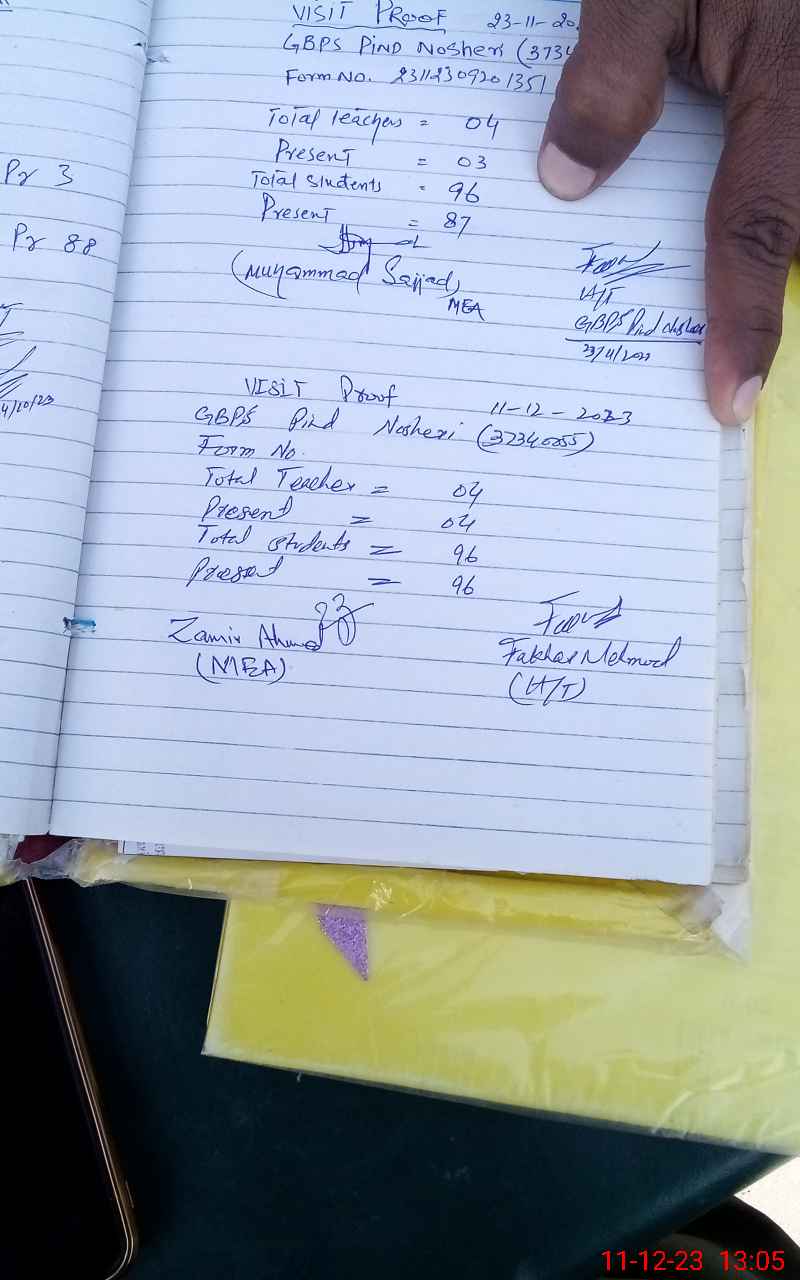 Pr 3
Pr 88
4/10/23
VISIT PROOF 23-11-20
GBPS PIND NosheRi (3734
Form NO. 23112309201351
Total teachers = 04
Present = 03
Total students = 96
Present = 87
(Muhammad Sajjad)
MEA
H/T
GBPS Pind
23/11/2023
VISIT Proof 11-12-2023
GBPS Pind Nosheri (37340055)
Form No.
Total Teacher = 04
Present = 04
Total students = 96
Present = 96
Zamir Ahmed
(MEA)
Fakhar Mehmood
(H/T)
11-12-23 13:05